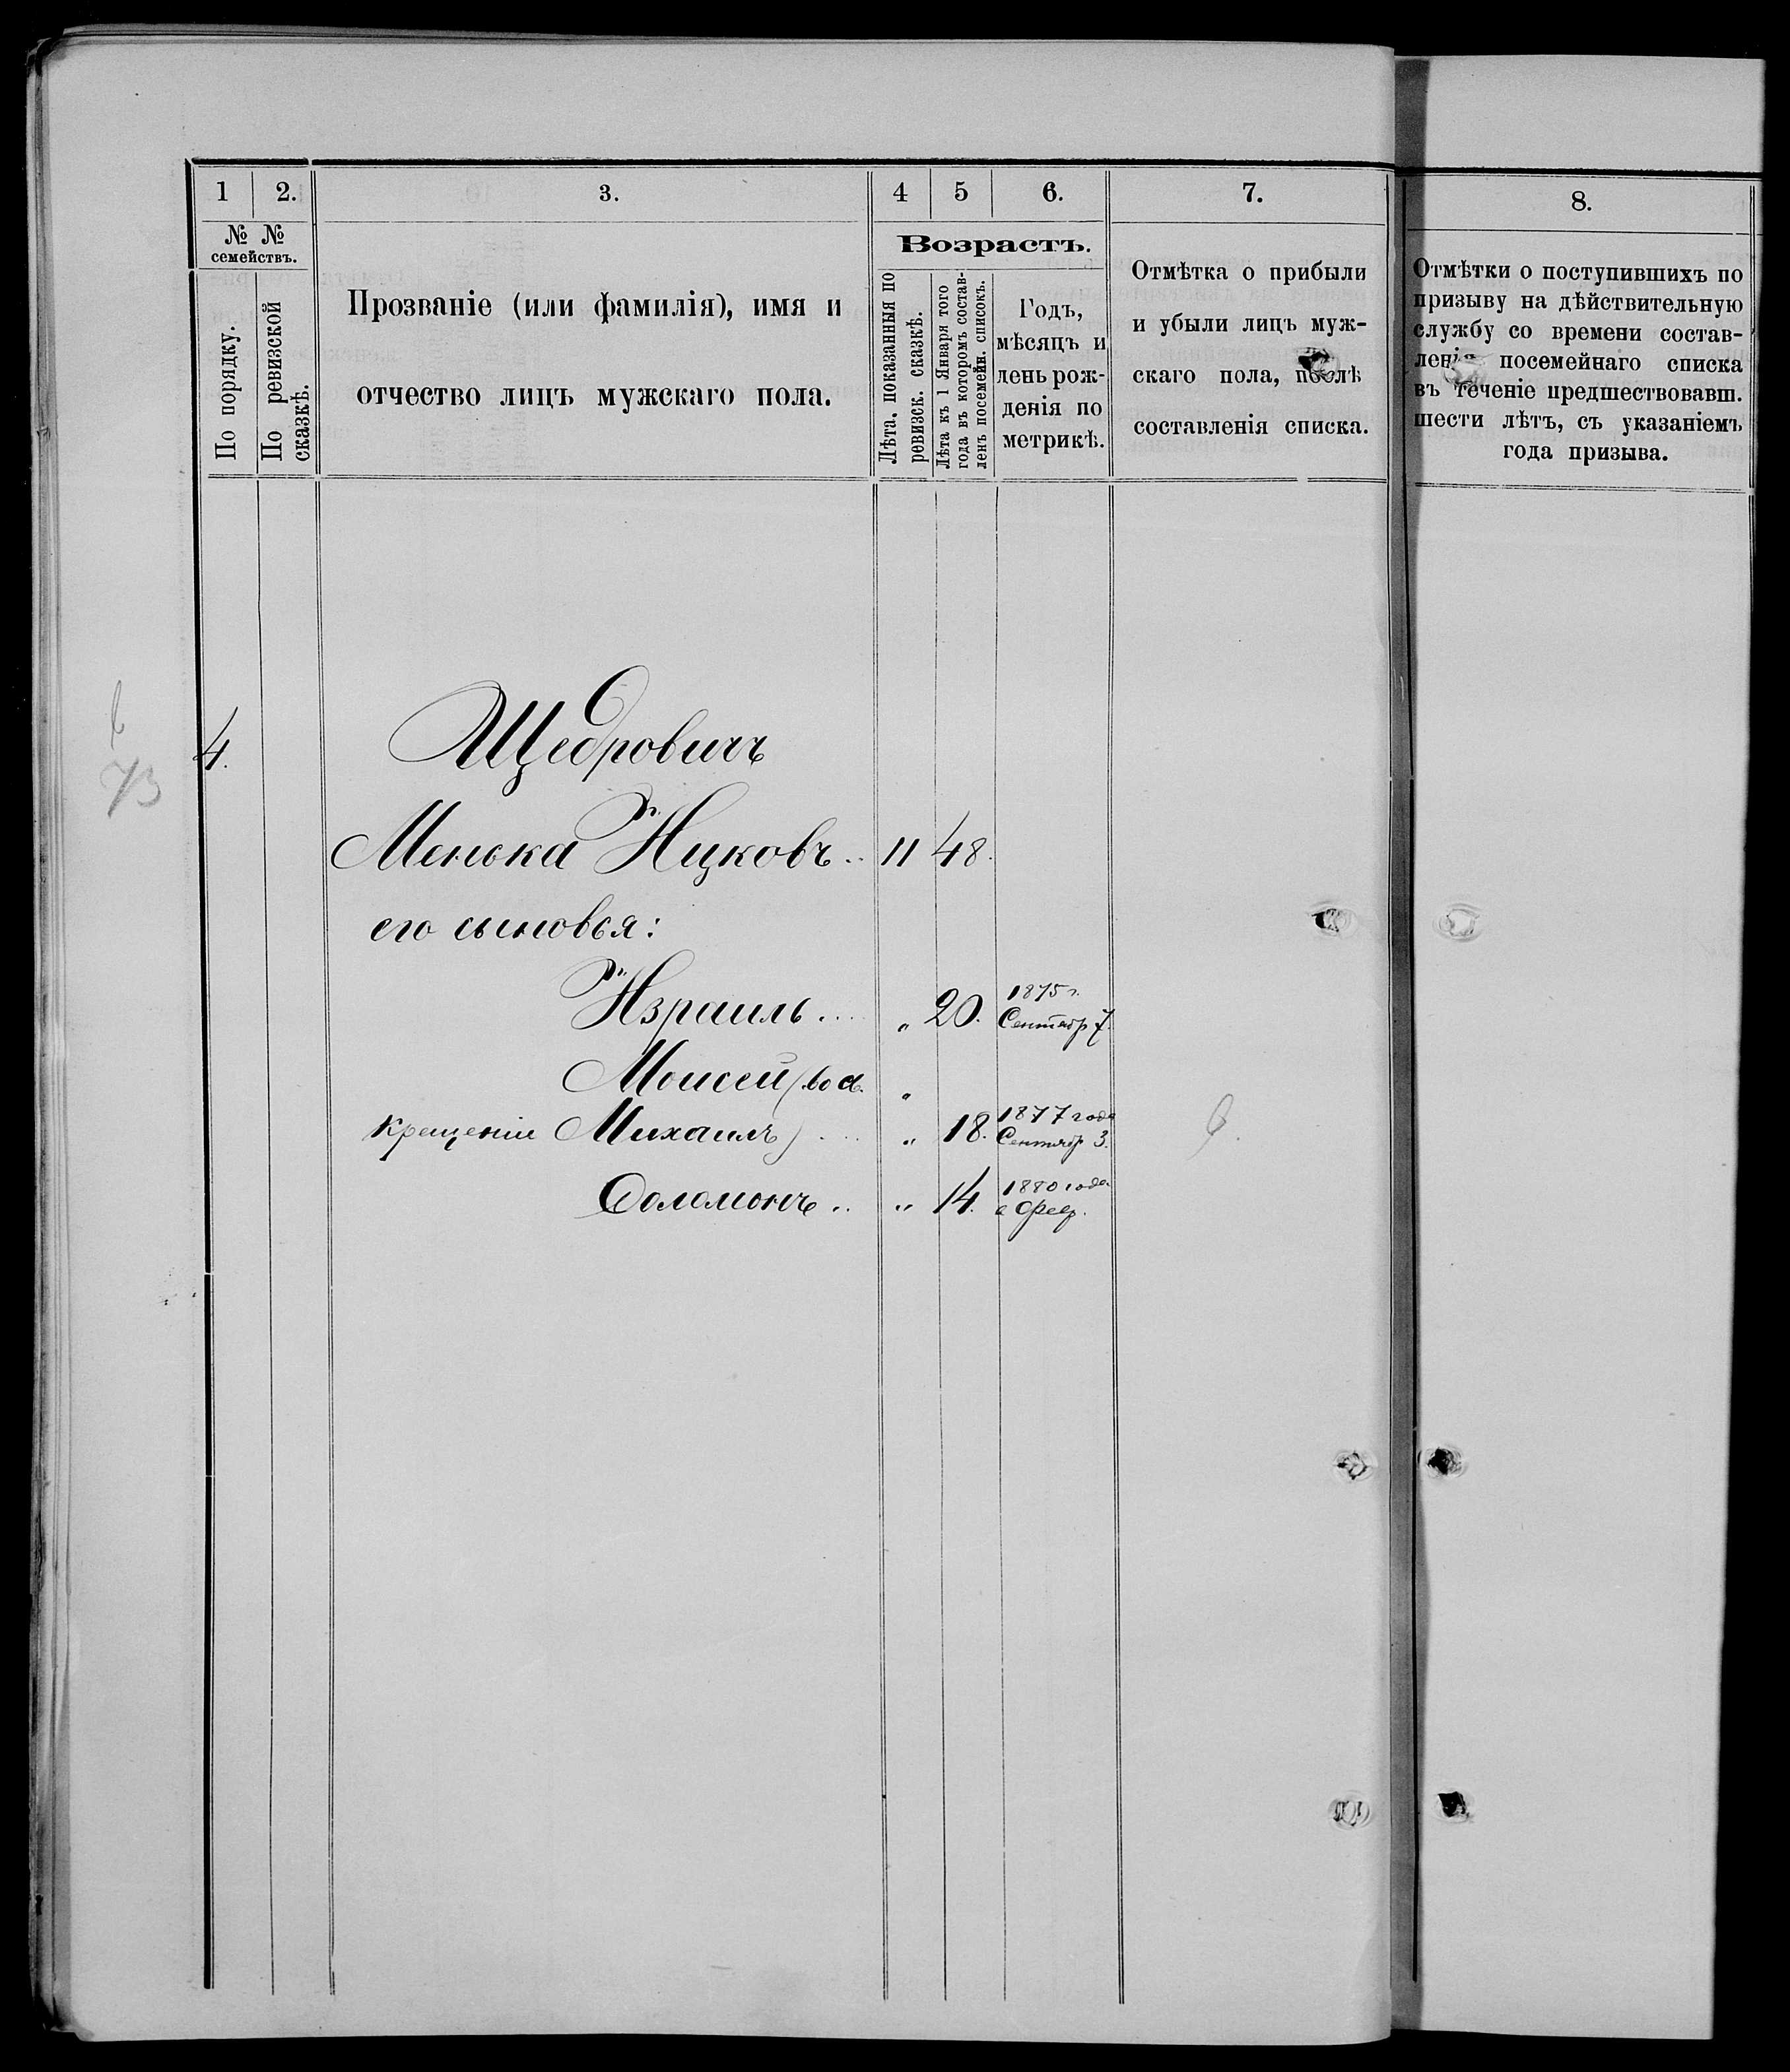 1 2. 3. 4 5 6. 7. 8.
№ № семействъ.
По порядку.
По ревизской сказкѣ.
Прозваніе (или фамилія), имя и
отчество лицъ мужскаго пола.
Возрастъ.
Лѣта, показанныя по
ревизск. сказкѣ.
Лѣта къ 1 Января того
года въ которомъ состав-
ленъ посемейн. списокъ.
Годъ,
мѣсяцъ и
день рож-
денія по
метрикѣ.
Отмѣтка о прибыли
и убыли лицъ муж-
скаго пола, послѣ
составленія списка.
Отмѣтки о поступившихъ по
призыву на дѣйствительную
службу со времени состав-
ленія посемейнаго списка
въ теченіе предшествовавш.
шести лѣтъ, съ указаніемъ
года призыва.
4. Щедровичъ
73
Менька Ицковъ .. 11 48.
его сыновья:
Израиль .... " 20. 1875 г.
Сентябр 7.
Моисей (во св. "
крещеніи Михаилъ) .... " 18. 1877 года
Сентябр 3.
Соломонъ .. " 14. 1880 года
Фев.